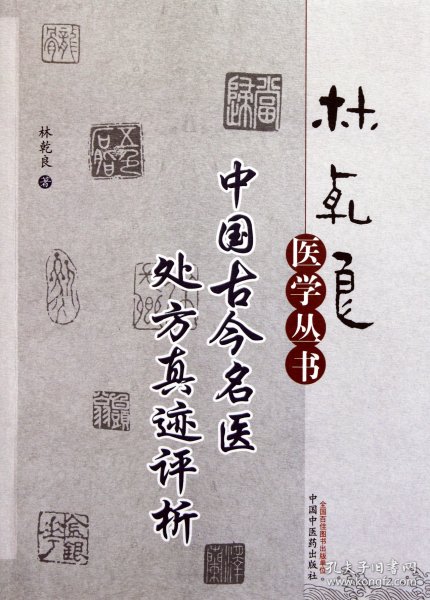 林乾良
医学丛书
中国古今名医
处方真迹评析
林乾良 著
全国百佳图书出版单位
中国中医药出版社
孔夫子旧书网
www.kongfz.com
当归